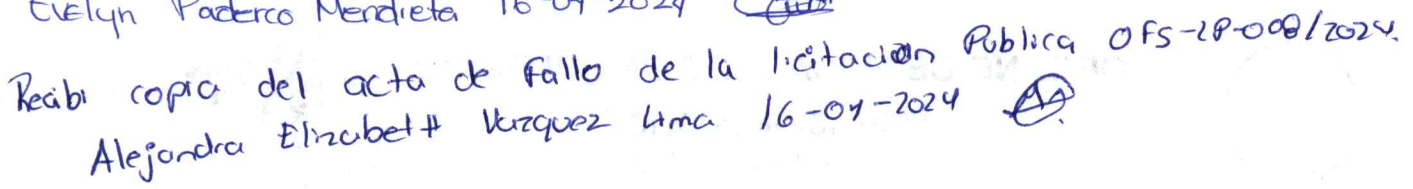 Evelyn Paderco Mendieta 16-04-2024
Recibi copia del acta de fallo de la licitación Publica OFS-LP-008/2024.
Alejandra Elizabett Vazquez Lima 16-04-2024